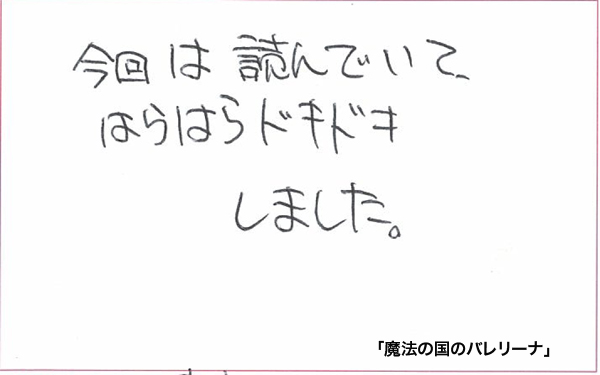 今回は読んでいて、
はらはらドキドキ
しました。
「魔法の国のバレリーナ」